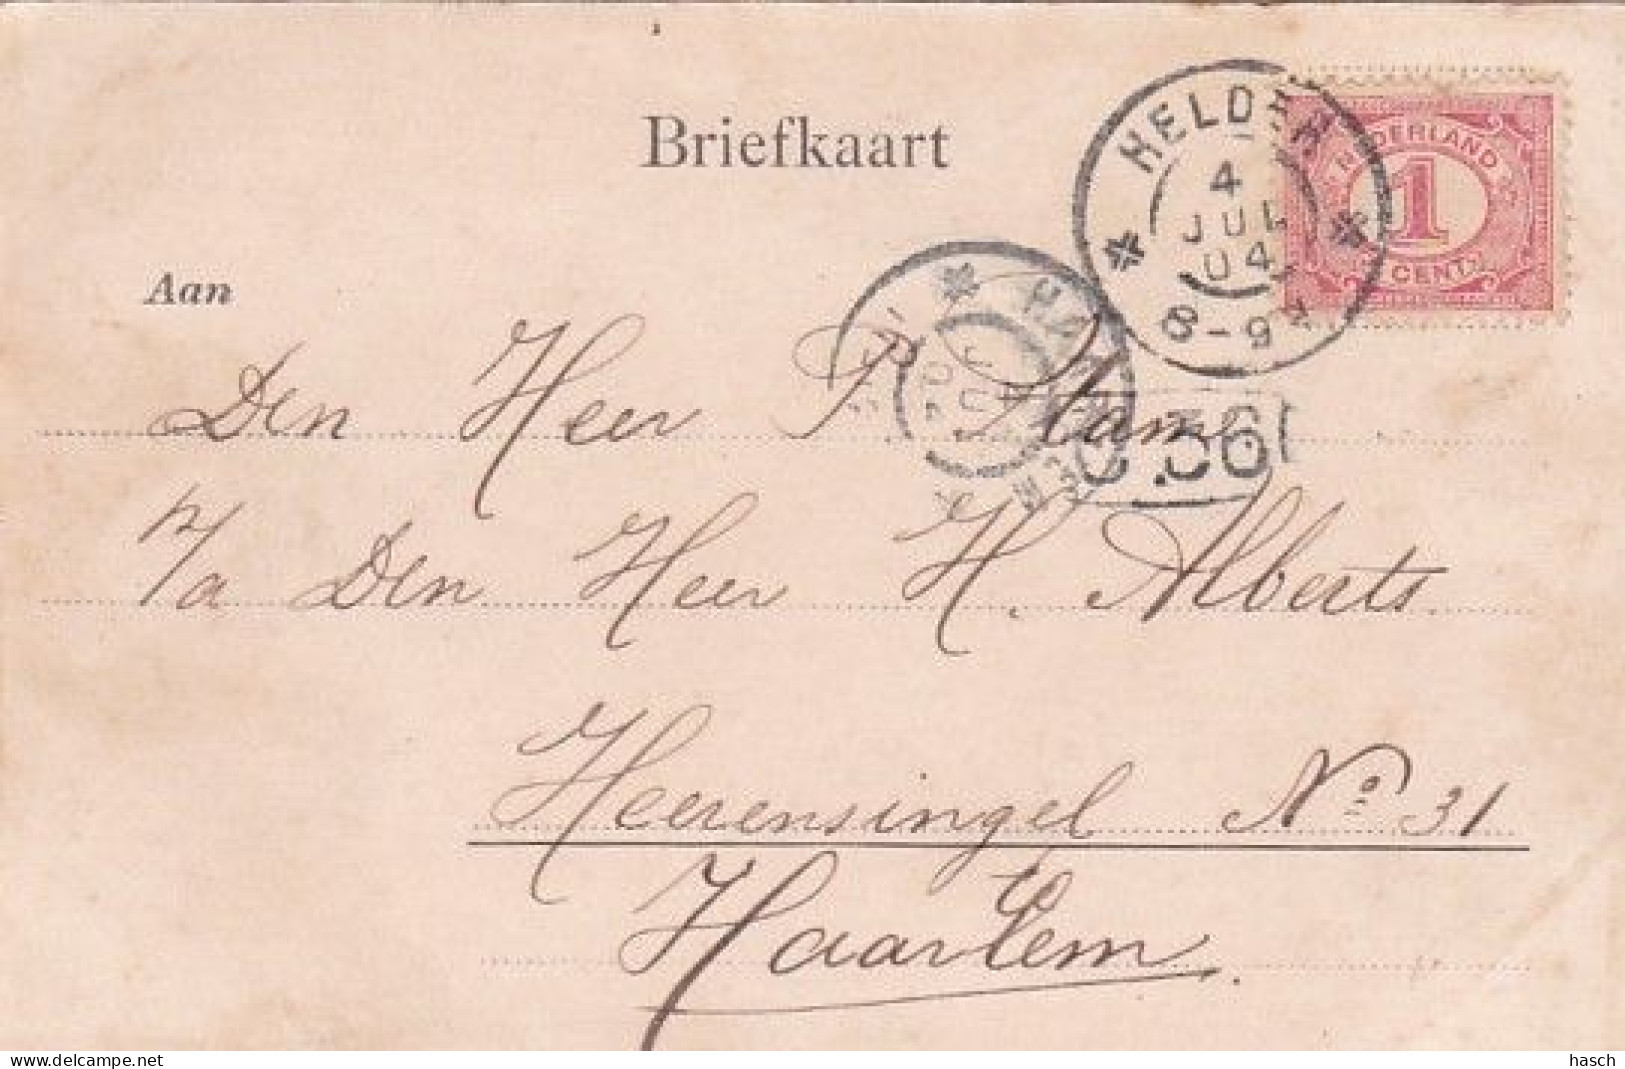 Briefkaart
HELDER
4
JUL
04
8-9V
NEDERLAND
1
CENT
Aan
HAARLEM
JUL
04
Den Heer P. Plame
p/a Den Heer H. Alberts.
Heerensingel No. 31
Haarlem.
www.delcampe.net
hasch